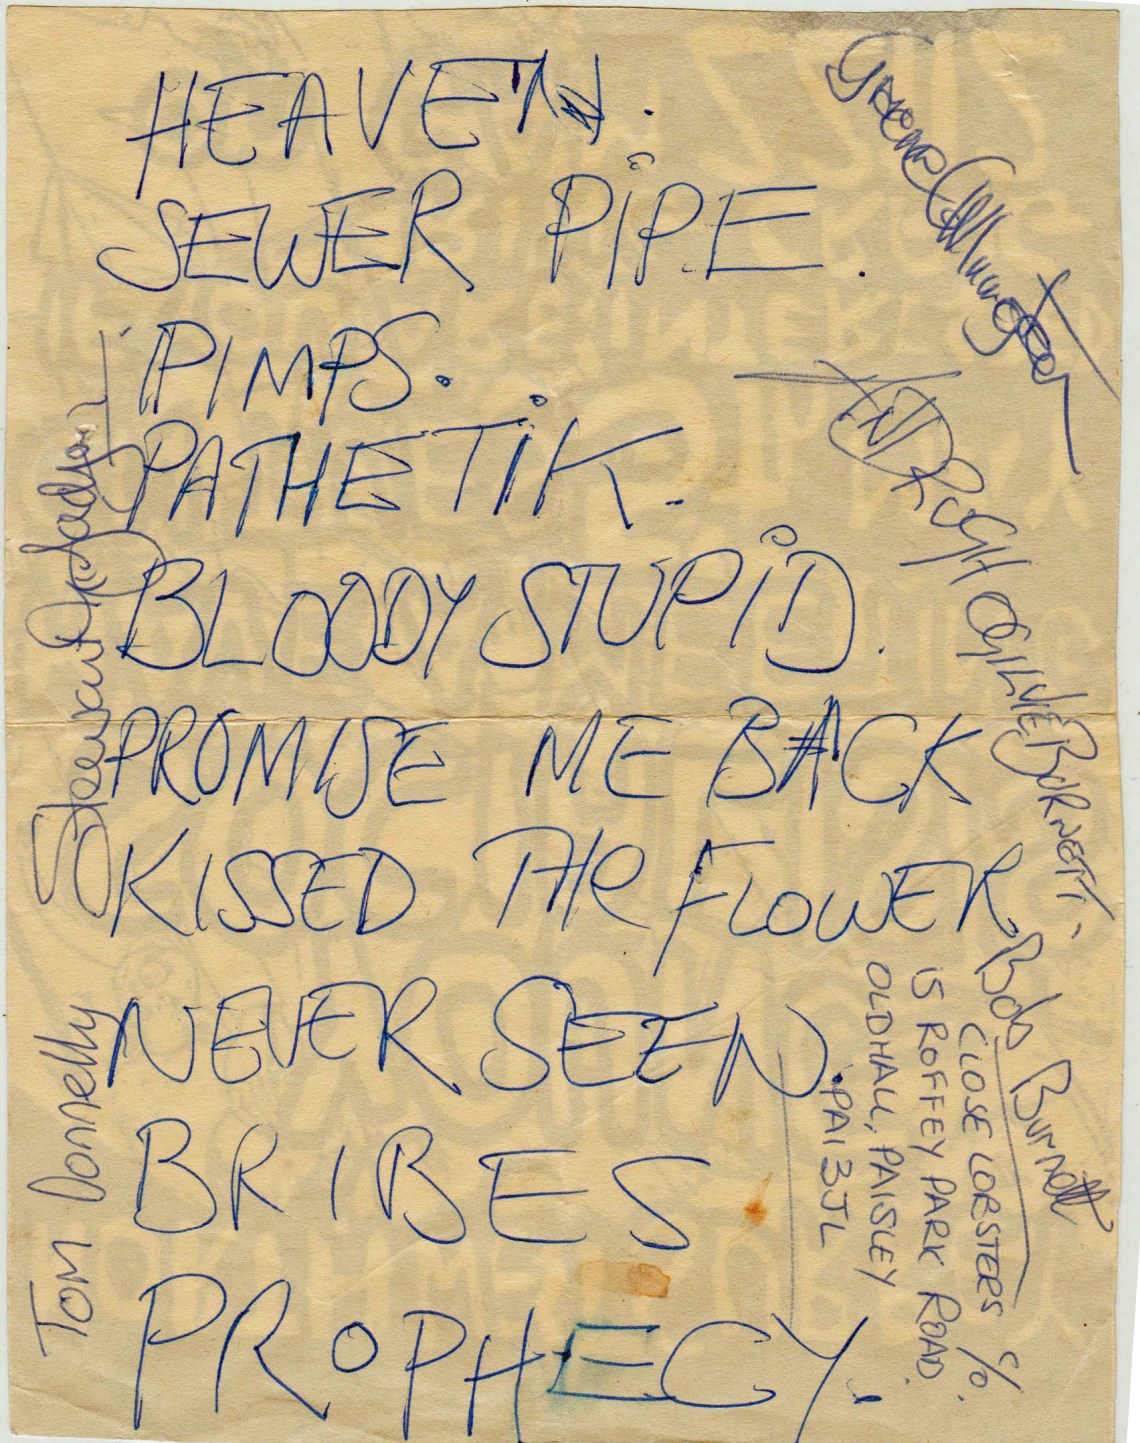 HEAVEN.
SEWER PIPE.
PIMPS.
PATHETIK.
BLOODY STUPID.
PROMISE ME BACK
KISSED THE FLOWER
NEVER SEEN.
BRIBES
PROPHECY.
Graeme
ANDREW HUGH OGILVIE BURNETT.
Bob Burnett
CLOSE LOBSTERS %
15 ROFFEY PARK ROAD.
OLDHALL, PAISLEY
PA1 3JL
Stewart
Tom Donnelly